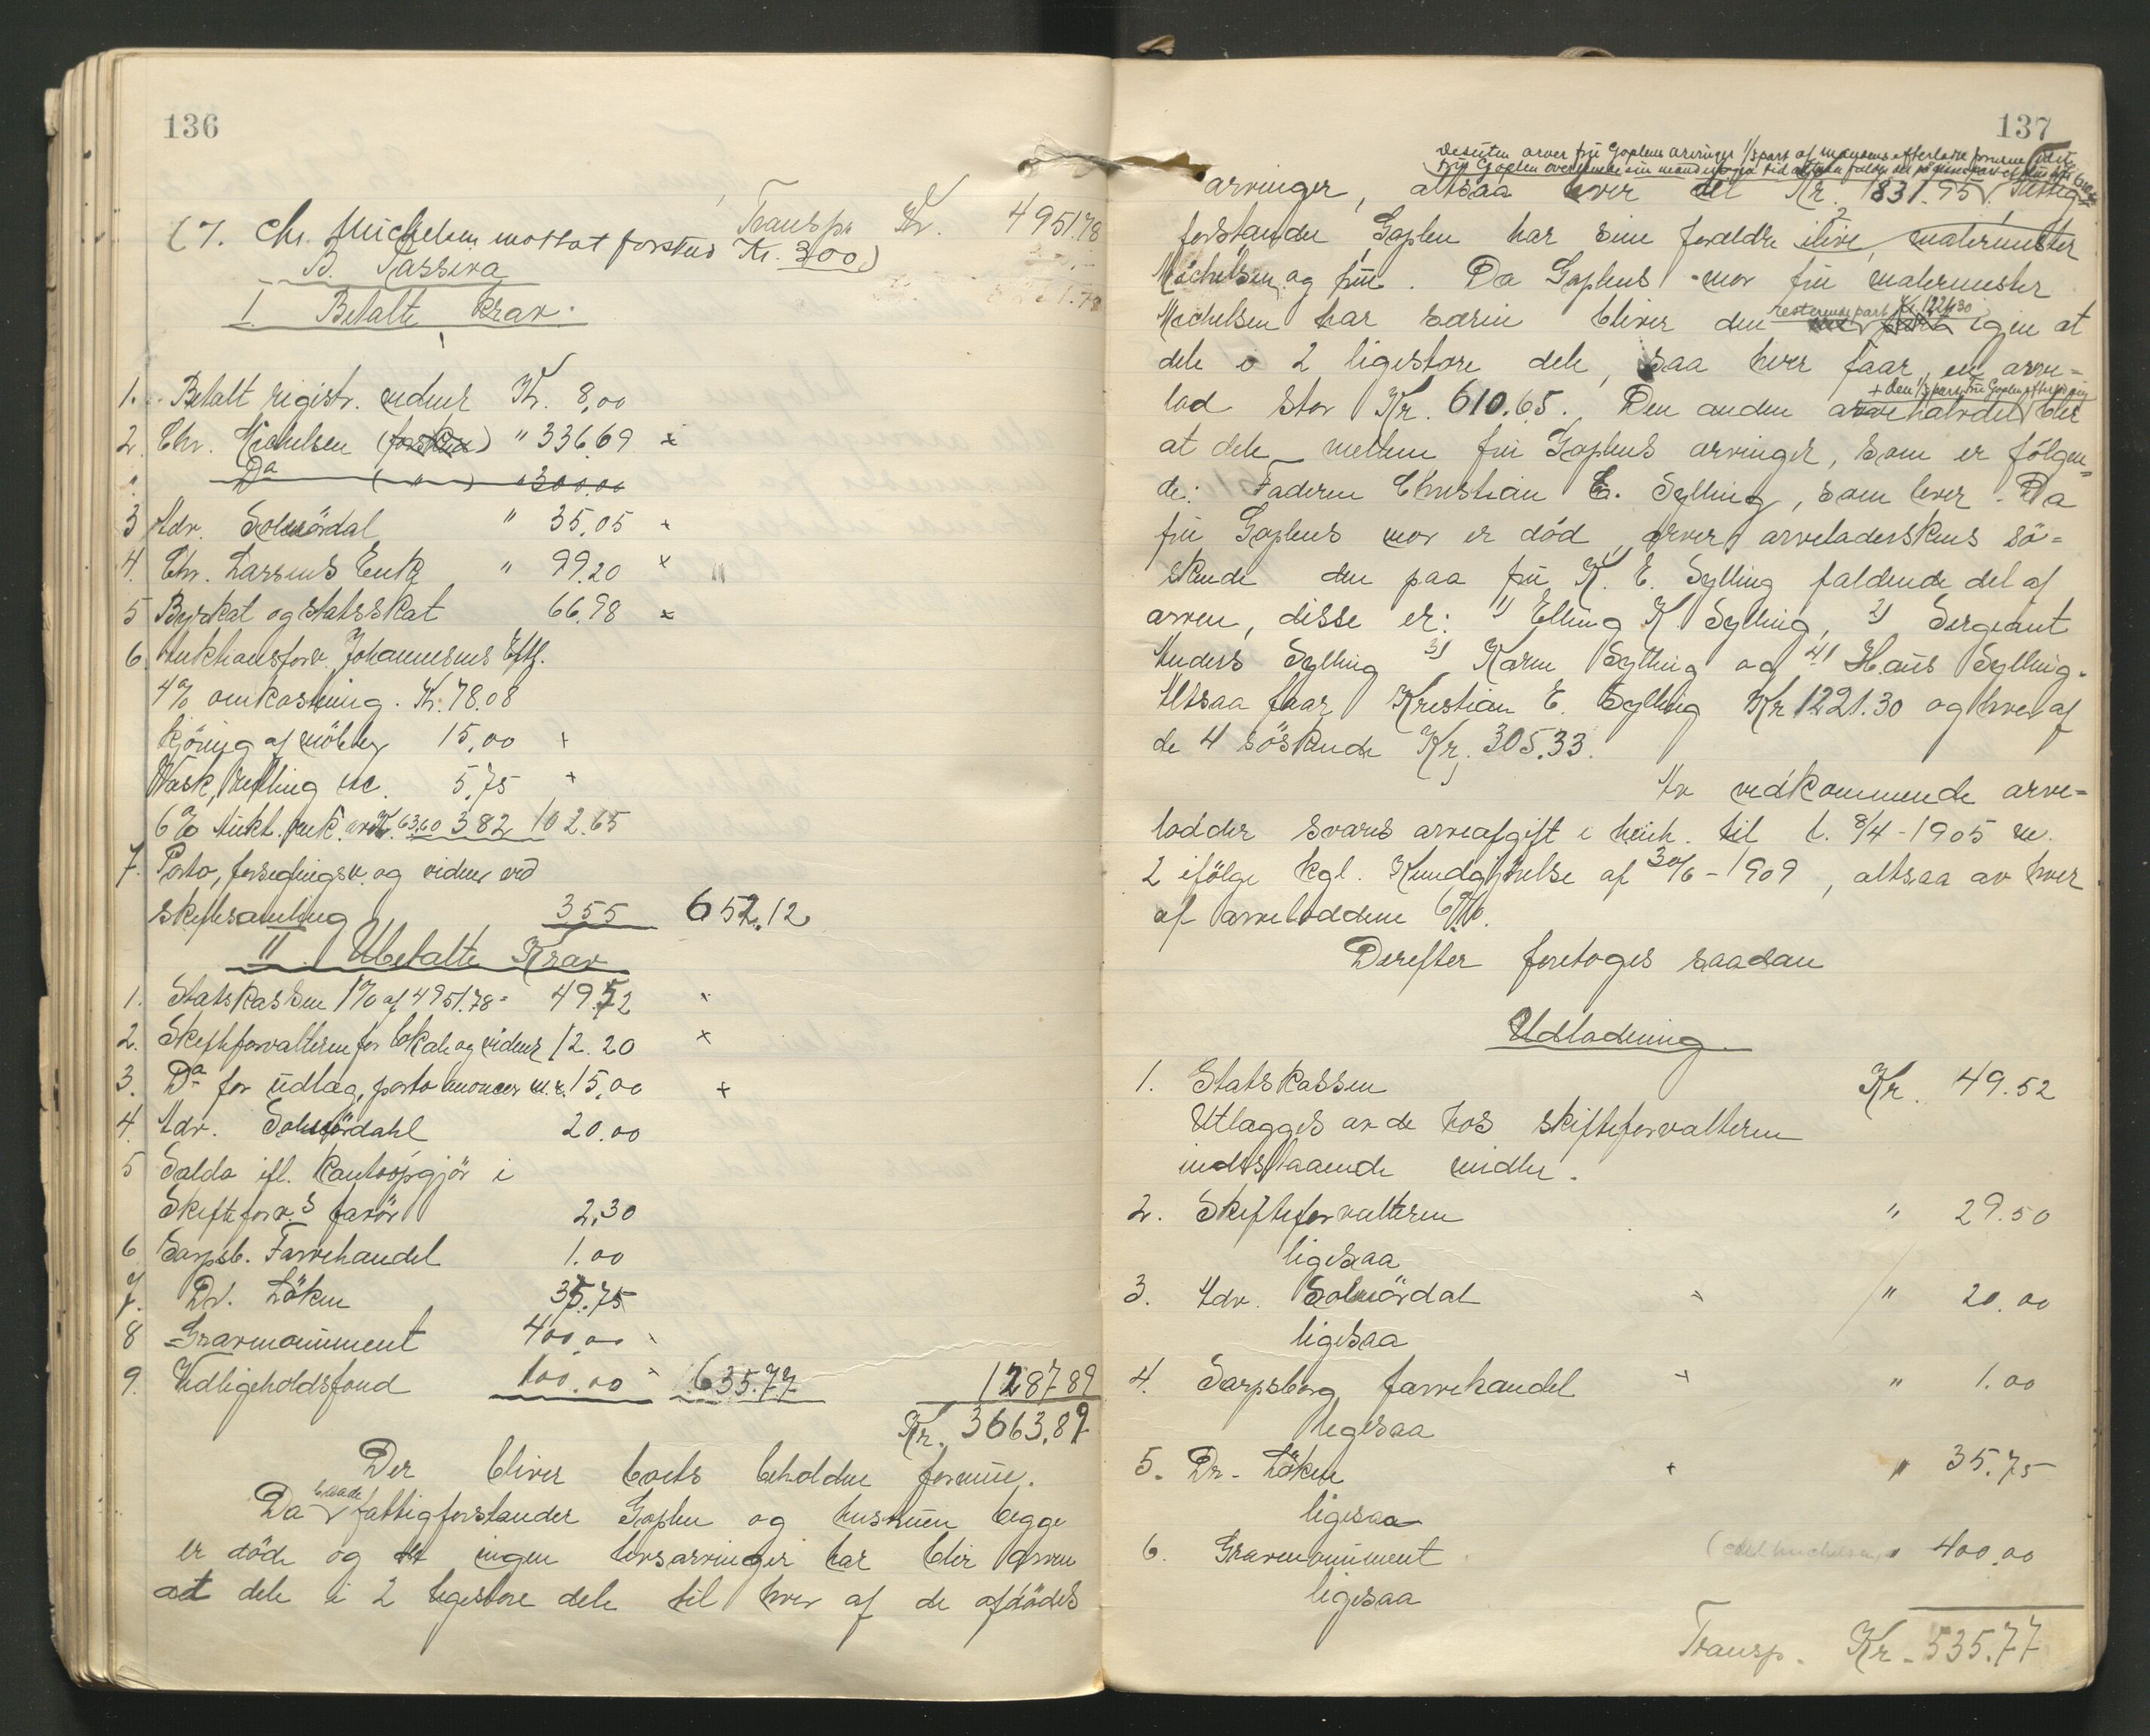 136
Transp. Kr. 4951.78
(7. Chr. Michelsen mottat forskud Kr. 300)
B. Passiva
I Betalte krav.
1. Betalt registr. vidner Kr. 8,00
2. Chr. Michelsen (forskud) " 336.69 x
Do ( " ) " 300.00
3 Adv. Solnördal " 35.05 x
4. Chr. Larsens Enke " 99.20 x
5 Byskat og statsskat 66.98 x
6. Auktionsforv. Johannesens Eftf.
4% omkostning. Kr. 78.08
kjöring af möbler 15,00 x
Vask, etc. 5.75 x
6% Aukt. 63,60 3 82 102.65
7. Porto, forseglingsv. og vidner ved
skiftesamling 3 55 652.12
II. Ubetalte Krav
1. Statskassen 1% af 4951.78 = 49.52 x
2. Skifteforvalteren for lokale og vidner 12.20 x
3. Do for udlæg, porto anoncer m.v. 15,00 x
4. Adv. Solnördahl 20.00
5 Saldo ifl. kontoopgjör i
Skifteforv.s favör 2,30
6 Sarpsb. Farvehandel 1.00
7. Dr. Löken 35.75
8 Gravmonument 400.00
9. Vedligeholdsfond 100.00 635.77 1287 89
Kr. 3663.89
Der bliver boets beholdne formue.
Da baade fattigforstander Goplen og hustruen begge
er döde og ingen livsarvinger har blir arven
at dele i 2 ligestore dele til hver af de afdödes
137
Desuten arver fru Goplens arvinger 1/3 part af mandens efterladte formue
fru Goplen overlevde sin mand
arvinger, altsaa hver del Kr. 1831.95. Fattig-
forstander Goplen har sine forældre ilive, malermester
Michelsen og frue. Da Goplens mor fru malermester
Michelsen har særeie bliver den resterende part Kr 1221.30 igjen at
dele i 2 ligestore dele, saa hver faar en arve-
+ den 1/3 part fru Goplen
lod stor Kr. 610.65. Den anden arvehalvdel blir
at dele mellem fru Goplens arvinger, som er fölgen-
de: Faderen Christian E. Sylling, som lever. Da
fru Goplens mor er död, arver arveladerskens sö-
skende den paa fru K. E. Sylling faldende del af
arven, disse er: 1) Elling K. Sylling, 2) Sergeant
Anders Sylling 3) Karen Sylling og 4) Hans Sylling.
Altsaa faar Kristian E. Sylling Kr 1221.30 og hver af
de 4 söskende Kr. 305.33.
Av vedkommende arve-
lodder svares arveafgift i henh. til l. 8/4-1905 nr.
2 ifölge kgl. Kundgjörelse af 30/6-1909, altsaa av hver
af arveloddene 6%.
Derefter foretoges saadan
Udlodning
1. Statskassen Kr. 49.52
Utlægges av de hos skifteforvalteren
indestaaende midler.
2. Skifteforvalteren " 29.50
ligesaa
3. Adv. Solnördal " 20.00
ligesaa
4. Sarpsborg farvehandel " 1.00
ligesaa
5. Dr. Löken " 35.75
ligesaa
6. Gravmonument " 400.00
ligesaa
Transp. Kr. 535.77